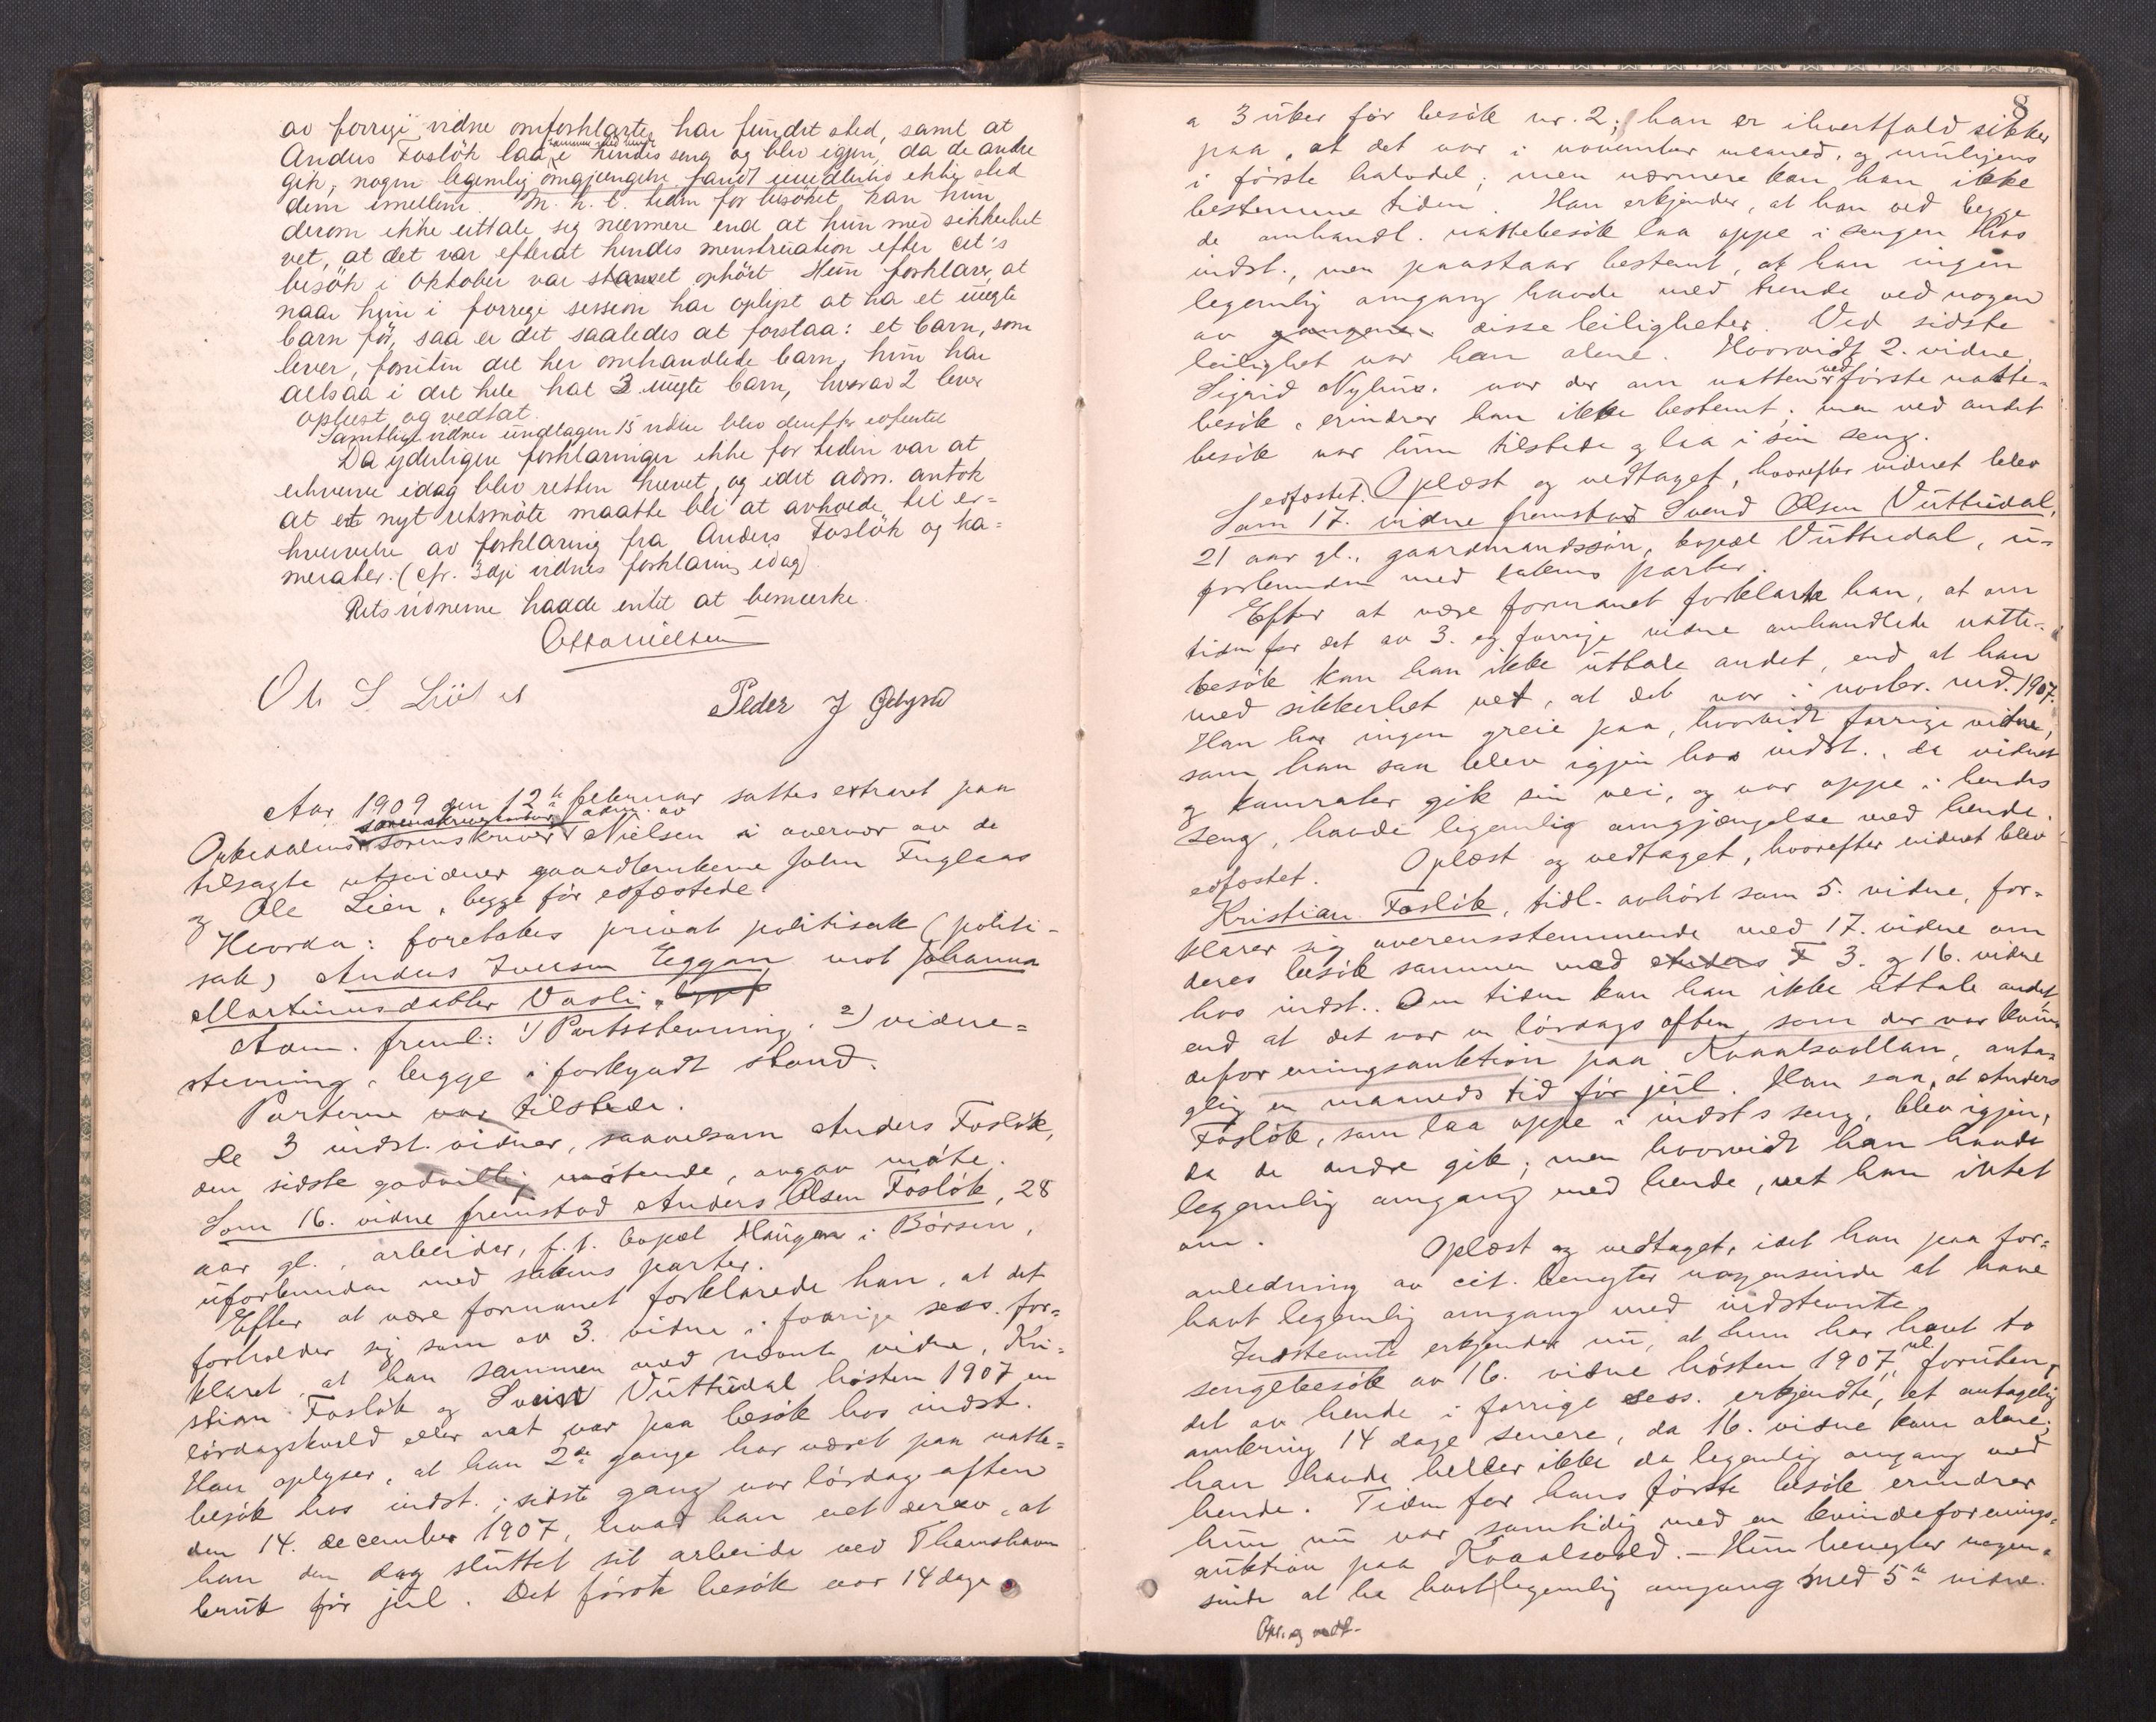 av forrige vidne omforklarte har fundet sted, samt at
Anders Foslök laa sammen med hende i hendes seng og blev igjen, da de andre
gik; nogen legemlig omgjængelse fandt imidlertid ikke sted
dem imellem. M. h. t. tiden for besöket kan hun
derom ikke uttale sig nærmere end at hun med sikkerhet
vet, at det var efterat hendes menstruation efter cit's
besök i oktober var stanset ophört. Hun forklarer, at
naar hun i forrige session har oplyst at ha et uegte
barn för, saa er det saaledes at forstaa: et barn, som
lever, foruten det her omhandlede barn; hun har
altsaa i det hele hat 3 uegte barn, hvorav 2 lever
oplæst og vedtat.
Samtlige vidner undtagen 15 vidne blev derefter edfæstet
Da yderligere forklaringer ikke for tiden var at
erhverve idag blev retten hævet, og idet adm. antok
at et nyt retsmöte maatte bli at avholde til er=
hvervelse av forklaring fra Anders Foslök og ka=
merater. (cfr. 3dje vidnes forklaring idag)
Retsvidnerne hadde intet at bemerke.
Otto Nielsen
Ole S. Lien
Peder J
Aar 1909 den 12te februar sattes extraret paa
Orkedalens sorenskriverkontor adm. av
sorenskriver Nielsen i overvær av de
tilsagte retsvidner gaardbrukerne John Fuglaas
og Ole Lien, begge för edfæstede.
Hvorda: foretokes privat politisak (politi-
sak) Anders Iversen Eggen mot Johanna
Martinusdatter Vasli.
Adm. freml: 1) Partsstevning. 2) vidne=
stevning, begge i forkyndt stand.
Parterne var tilstede.
De 3 indst. vidner, saavelsom Anders Foslök,
den sidste godvillig mötende, avgav möte.
Som 16. vidne fremstod Anders Olsen Foslök, 28
aar gl., arbeider, f. t. bopæl Haugen i Börsen,
uforbunden med sakens parter.
Efter at være formanet forklarede han, at det
forholder sig som av 3. vidne i forrige sess. for=
klaret, at han sammen med nævnte vidne, Kri=
stian Foslök og Svend Vuttudal hösten 1907 en
lördagskveld eller nat var paa besök hos indst.
Han oplyser, at han 2de gange har været paa natte=
besök hos indst.; sidste gang var lördag aften
den 14. december 1907, hvad han vet derav, at
han den dag sluttet sit arbeide ved Thamshavn
bruk för jul. Det förste besök var 14 dage
8
a 3 uker för besök nr. 2; han er ihvertfald sikker
paa, at det var i november maaned, og muligens
i förste halvdel; men nærmere kan han ikke
bestemme tiden. Han erkjender, at han ved begge
de omhandl. nattebesök laa oppe i sengen hos
indst., men paastaar bestemt, at han ingen
legemlig omgang havde med hende ved nogen
av gangene disse leiligheter. Ved sidste
leilighet var han alene. Hvorvidt 2. vidne,
Sigrid Nyhus. var der om natten ved förste natte=
besök, erindrer han ikke bestemt; men ved andet
besök var hun tilstede og laa i sin seng.
Oplæst og vedtaget, hvorefter vidnet blev
edfæstet.
Som 17. vidne fremstod Svend Olsen Vuttudal,
21 aar gl., gaardmandssön, bopæl Vuttudal, u=
forbunden med sakens parter.
Efter at være formanet forklarte han, at om
tiden for det av 3. og forrige vidne omhandlede natte=
besök kan han ikke uttale andet, end at han
med sikkerhet vet, at det var i novbr. md. 1907.
Han har ingen greie paa, hvorvidt forrige vidne,
som han saa blev igjen hos indst., da vidnet
og kamrater gik sin vei, og var oppe i hendes
seng, havde legemlig omgjængelse med hende.
Oplæst og vedtaget, hvorefter vidnet blev
edfæstet.
Kristian Foslök, tidl. avhört som 5. vidne, for=
klarer sig overensstemmende med 17. vidne om
deres besök sammen med Anders F 3. og 16. vidne
hos indst.. Om tiden kan han ikke uttale andet,
end at det var en lördags aften, som der var kvin=
deforeningsauktion paa Kvaalsvollan, anta=
glig en maaneds tid för jul. Han saa, at Anders
Foslök, som laa oppe i indst's seng, blev igjen,
da de andre gik; men hvorvidt han havde
legemlig omgang med hende, vet han intet
om.
Oplæst og vedtaget, idet han paa for=
anledning av cit. benegter nogensinde at have
havt legemlig omgang med indstevnte
Indstevnte erkjender nu, at hun har havt to
sengebesök av 16. vidne hösten 1907, foruten
det av hende i forrige sess. erkjendte, et antagelig
omkring 14 dage senere, da 16. vidne kom alene;
han havde heller ikke da legemlig omgang med
hende. Tiden for hans förste besök erindrer
hun nu var samtidig med en kvindeforenings=
auktion paa Kvaalsvold. – Hun benegter nogen=
sinde at ha havt legemlig omgang med 5te vidne.
Opl. og vedt.